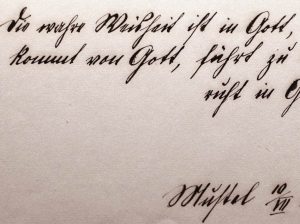 Die wahre Weisheit ist in Gott,
kommt von Gott, führt zu
ruht in G
Mustel 10/VII